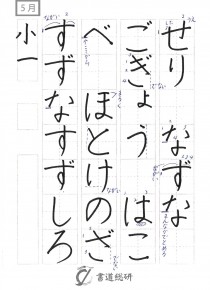 5月
せり なずな
ごぎょう はこ
べ ほとけのざ
すずなすずしろ
小一
書道総研